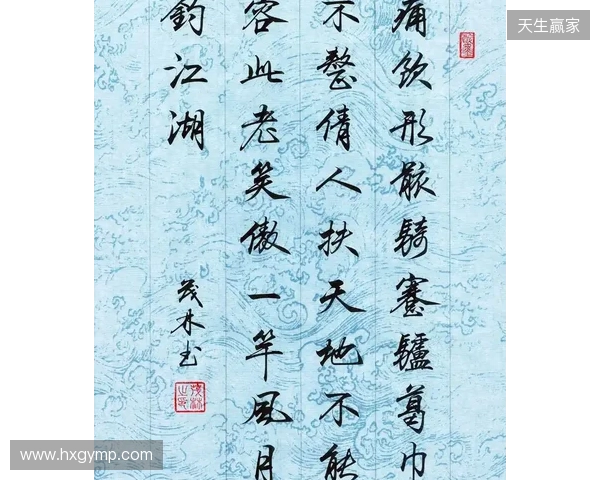 天生赢家
痛飲形骸騎蹇驢葛巾
不整倩人扶天地不能
容此老笑傲一竿風月
釣江湖
茂林书
www.hxgymp.com